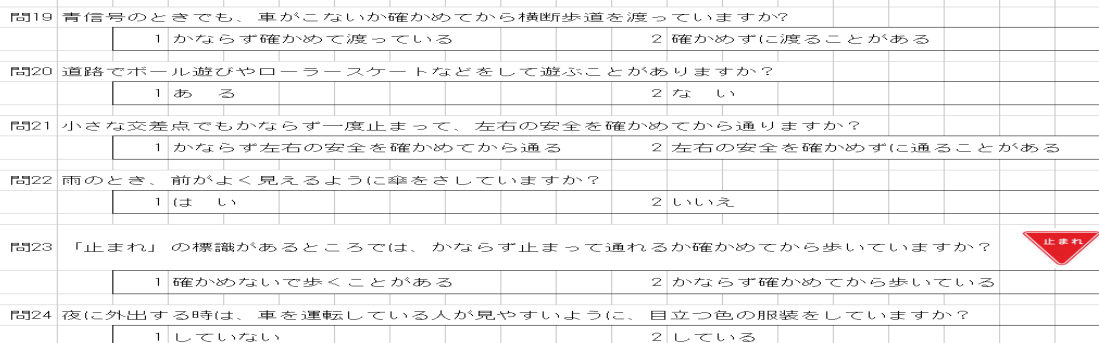 問19 青信号のときでも、車がこないか確かめてから横断歩道を渡っていますか?
1 かならず確かめて渡っている 2 確かめずに渡ることがある
問20 道路でボール遊びやローラースケートなどをして遊ぶことがありますか?
1 あ る 2 な い
問21 小さな交差点でもかならず一度止まって、左右の安全を確かめてから通りますか?
1 かならず左右の安全を確かめてから通る 2 左右の安全を確かめずに通ることがある
問22 雨のとき、前がよく見えるように傘をさしていますか?
1 は い 2 いいえ
問23 「止まれ」の標識があるところでは、かならず止まって通れるか確かめてから歩いていますか? 止まれ
1 確かめないで歩くことがある 2 かならず確かめてから歩いている
問24 夜に外出する時は、車を運転している人が見やすいように、目立つ色の服装をしていますか?
1 していない 2 している